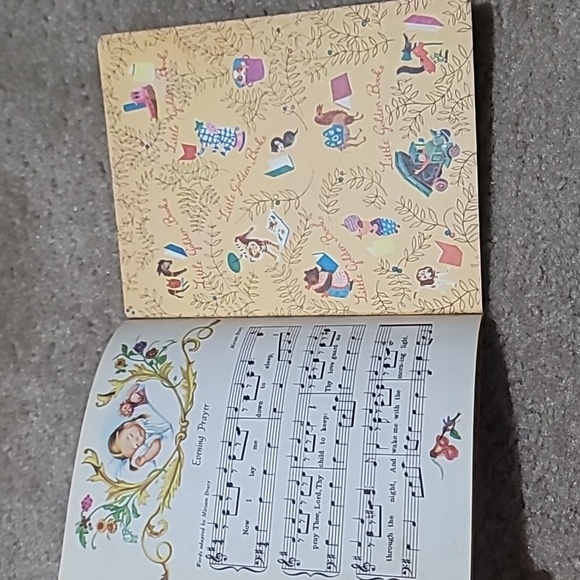 Little Golden Books
Little Golden Books
Little Golden Books
Little Golden Books
Little Golden Books
Little Golden Books
Evening Prayer
Words adapted by Miriam Drury
Miriam Drury
Now I lay me down to sleep, I
pray Thee, Lord, Thy child to keep: Thy love guard me
through the night, And wake me with the morn-ing light.